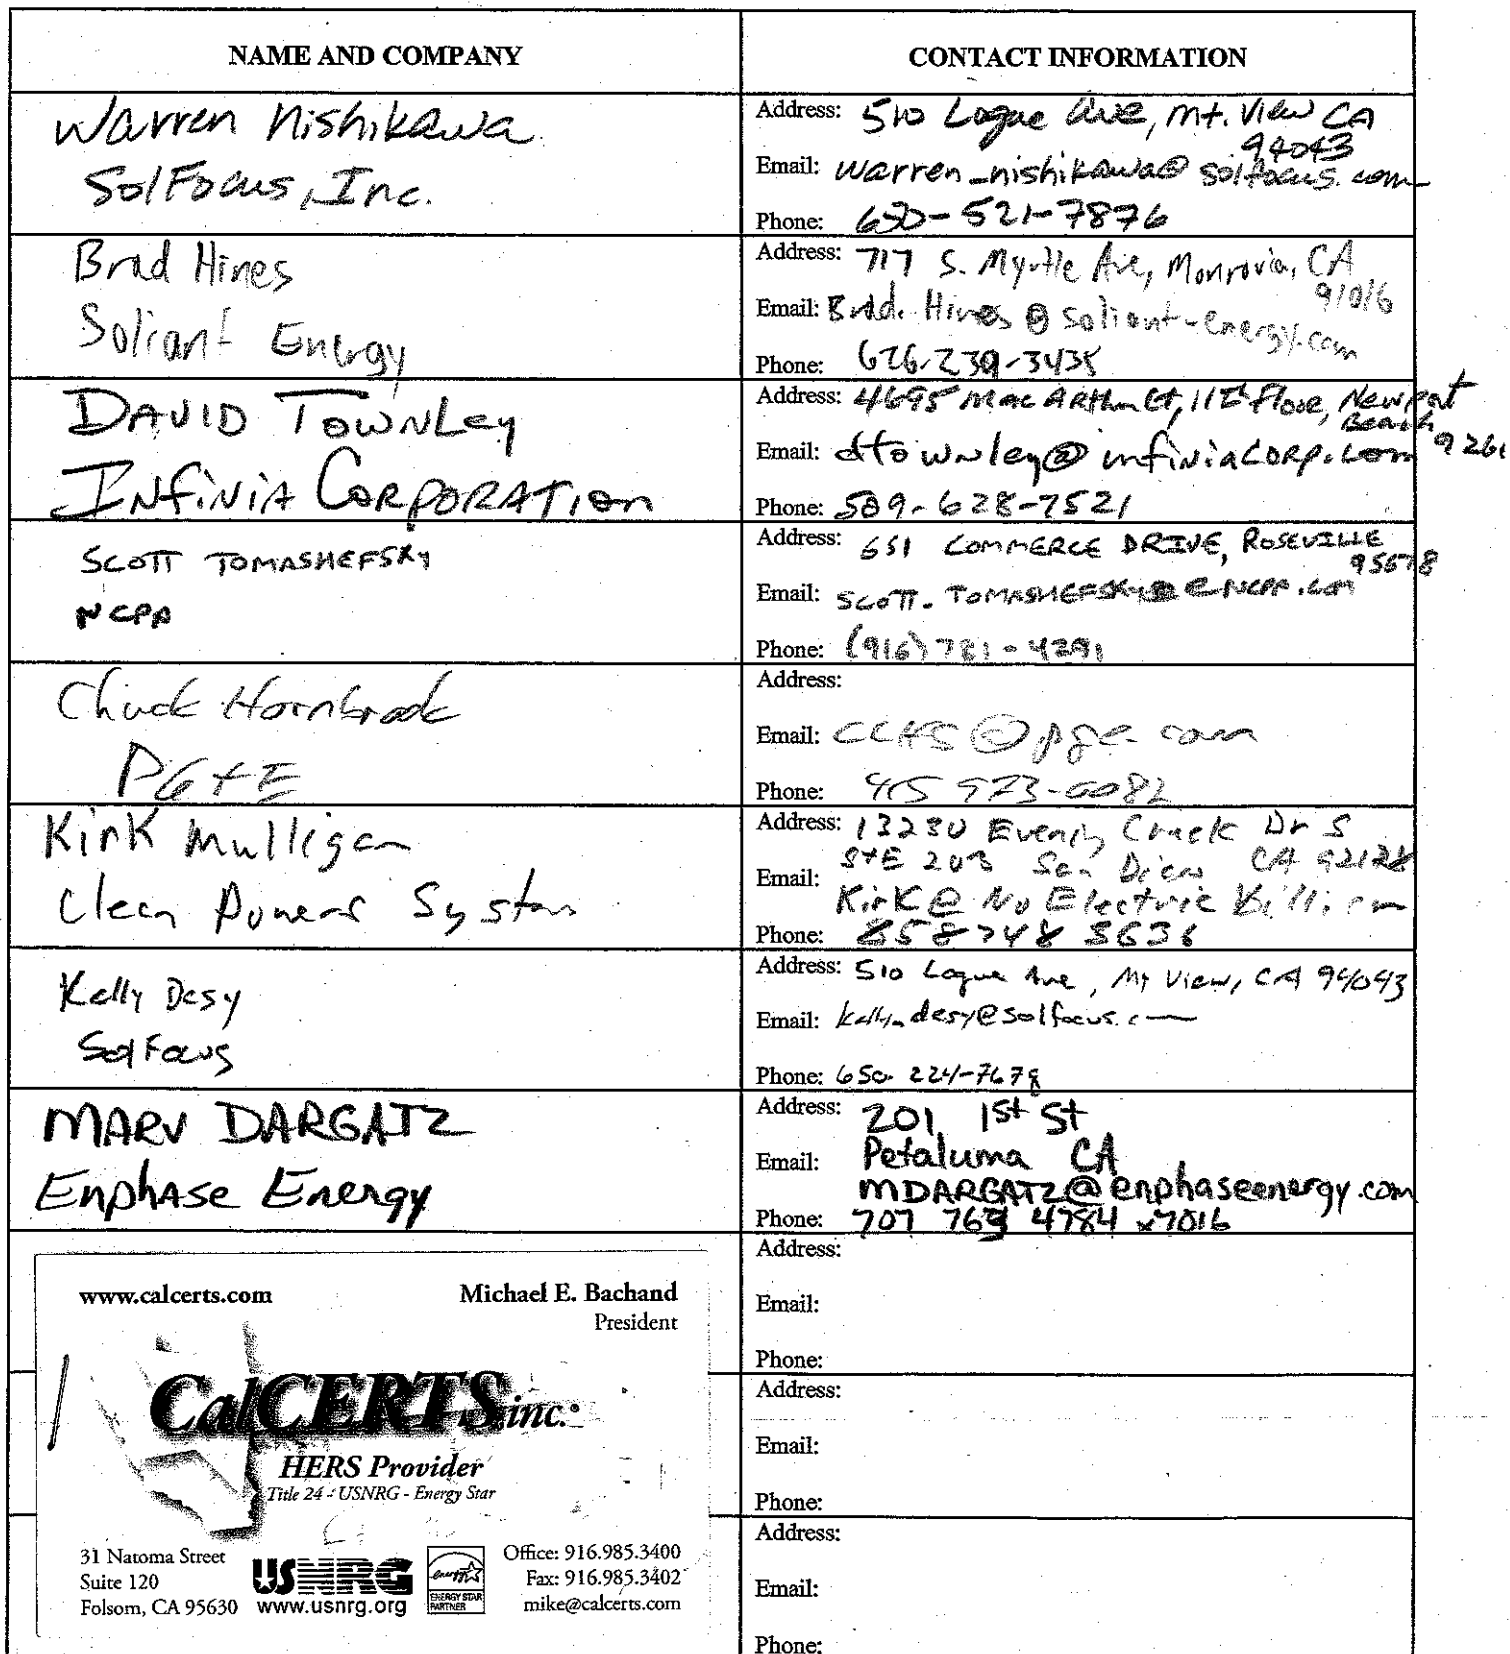 NAME AND COMPANY
CONTACT INFORMATION
Warren Nishikawa
SolFocus, Inc.
Address: 510 Logue Ave, Mt. View CA
94043
Email: warren_nishikawa@solfocus.com
Phone: 650-521-7876
Brad Hines
Soliant Energy
Address: 717 S. Myrtle Ave, Monrovia, CA
91016
Email: Brad.Hines@soliant-energy.com
Phone: 626-239-3435
DAVID TOWNLEY
INFINIA CORPORATION
Address: 4695 MacArthur Ct, 11th Floor, Newport
Beach
Email: dtownley@infiniacorp.com 9261
Phone: 509-628-7521
SCOTT TOMASHEFSKY
NCPA
Address: 651 COMMERCE DRIVE, ROSEVILLE
95678
Email: SCOTT.TOMASHEFSKY@NCPA.COM
Phone: (916) 781-4291
Chuck Hornbrook
PG+E
Address:
Email: CCHS@pge.com
Phone: 415 973-
Kirk Mulligan
Clean Power Systems
Address: 13230 Evening Creek Dr S
STE 203 San Diego CA 92128
Email:
Kirk@NoElectricBill.com
Phone: 858 748 5636
Kelly Desy
SolFocus
Address: 510 Logue Ave, Mt View, CA 94043
Email: kelly_desy@solfocus.com
Phone: 650-224-7678
MARV DARGATZ
Enphase Energy
Address: 201 1st St
Email: Petaluma CA
MDARGATZ@enphaseenergy.com
Phone: 707 763 4784 x7016
www.calcerts.com
Michael E. Bachand
President
CalCERTS inc.
HERS Provider
Title 24 - USNRG - Energy Star
31 Natoma Street
Suite 120
Folsom, CA 95630
USNRG
www.usnrg.org
energy
ENERGY STAR
PARTNER
Office: 916.985.3400
Fax: 916.985.3402
mike@calcerts.com
Address:
Email:
Phone:
Address:
Email:
Phone:
Address:
Email:
Phone: